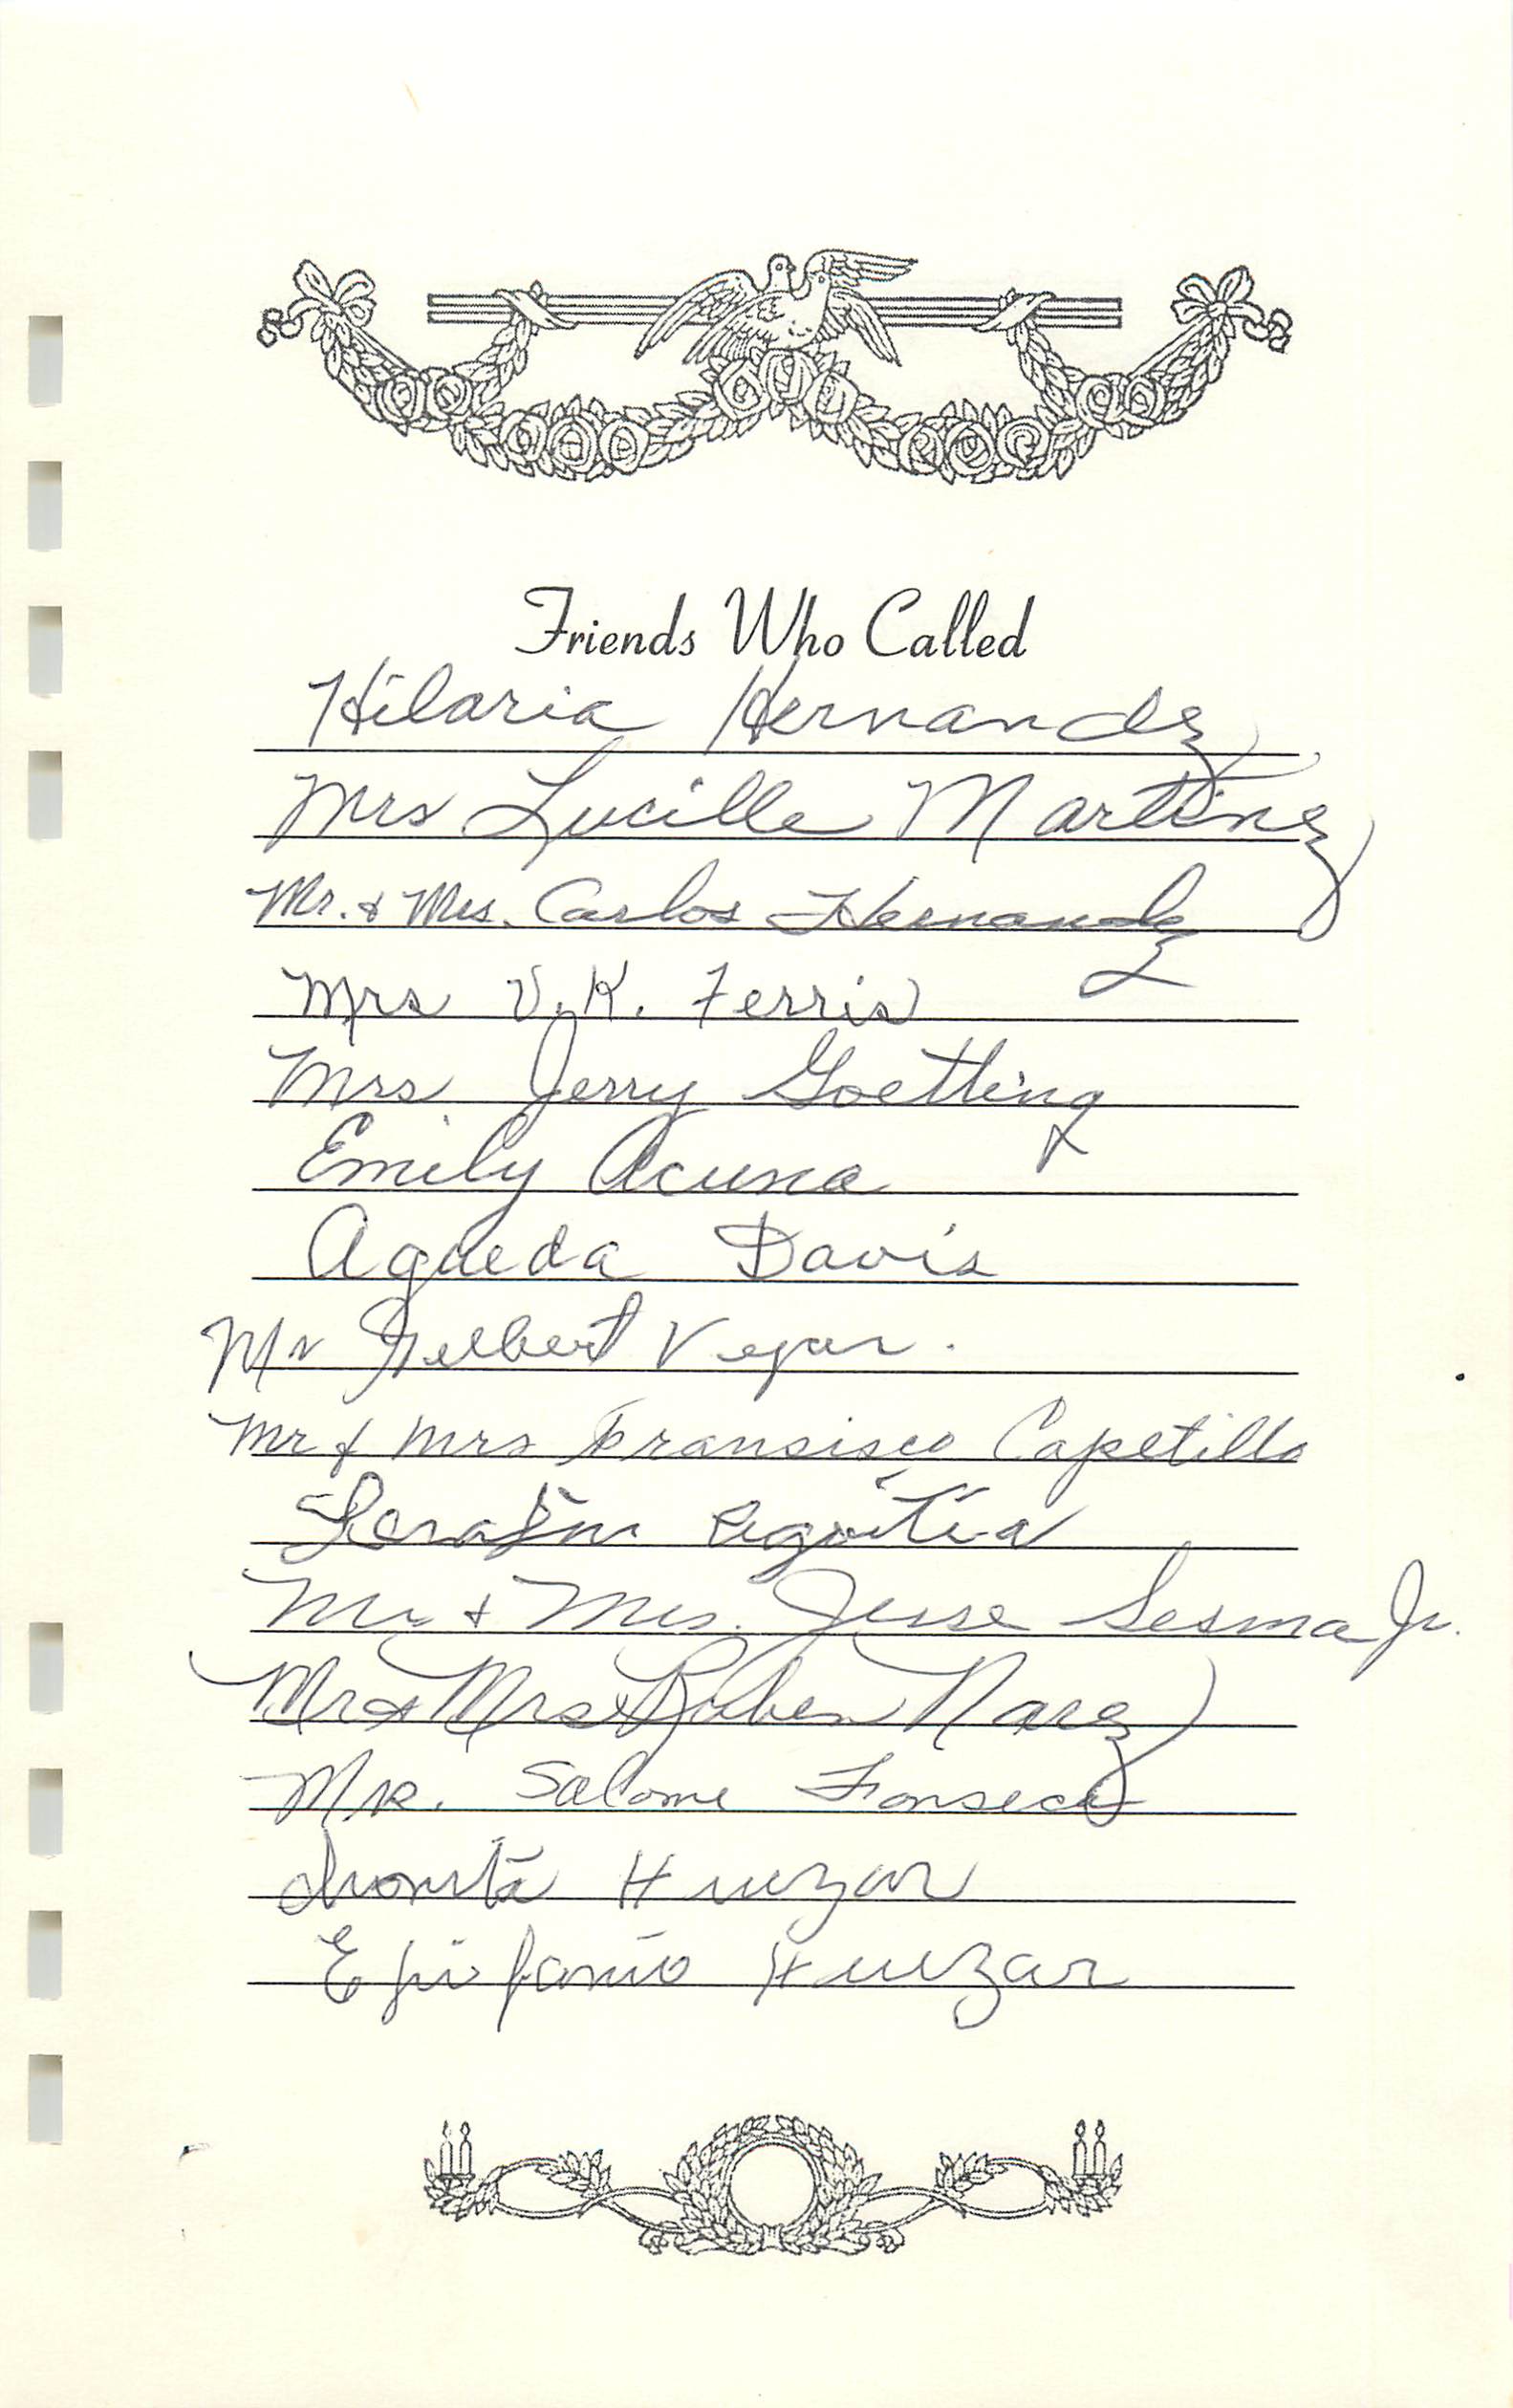 Friends Who Called
Hilaria Hernandez
Mrs Lucille Martinez
Mr. & Mrs. Carlos Hernandez
Mrs V. K. Ferris
Mrs Jerry Goetting
Emily Acuna
Agueda Davis
Mr Gelbert Vejar.
Mr & Mrs Fransisco Capetillo
Serafin
Mr & Mrs. Jesse Sesma Jr.
Mr & Mrs Ruben Narez
Mr. Salome Fonseca
Huizar
Epifanio Huizar